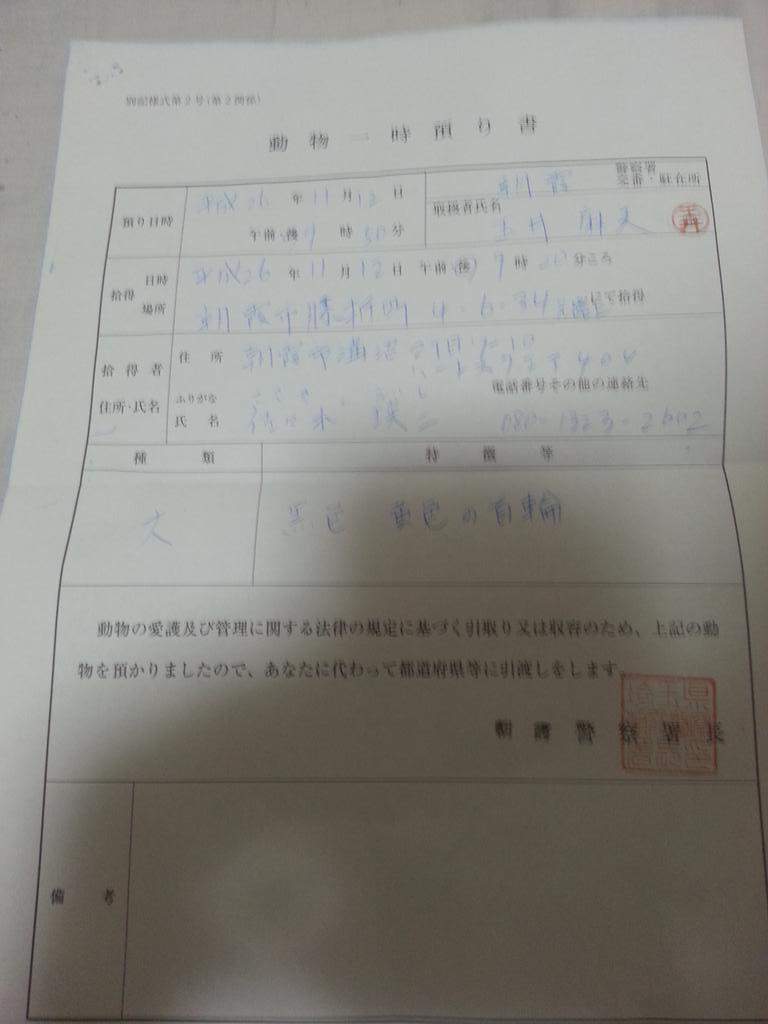 別記様式第２号(第２関係)
動物一時預り書
預り日時 平成26年11月12日
午前・後9時50分
朝霞 警察署
交番・駐在所
取扱者氏名
拾得 日時 平成26年11月12日 午前・後9時 分ごろ
場所 朝霞市膝折町4-6-34 にて拾得
拾得者
住所・氏名
住所 朝霞市溝沼
ふりがな ささき
氏名 佐々木
電話番号その他の連絡先
080-1323-2602
種類 特徴等
犬 黒色 黄色の首輪
動物の愛護及び管理に関する法律の規定に基づく引取り又は収容のため、上記の動
物を預かりましたので、あなたに代わって都道府県等に引渡しをします。
朝霞警察署長
備考